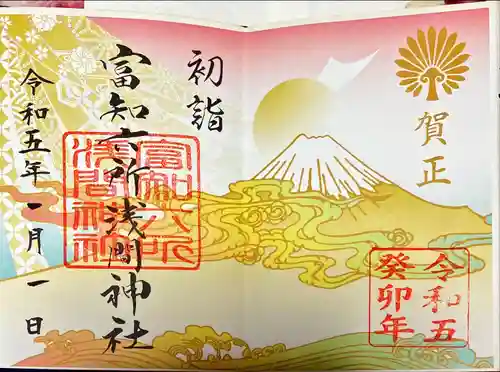 賀正
令和五
癸卯年
初詣
富知六所浅間神社
富知六所
淺間神社
令和五年一月一日